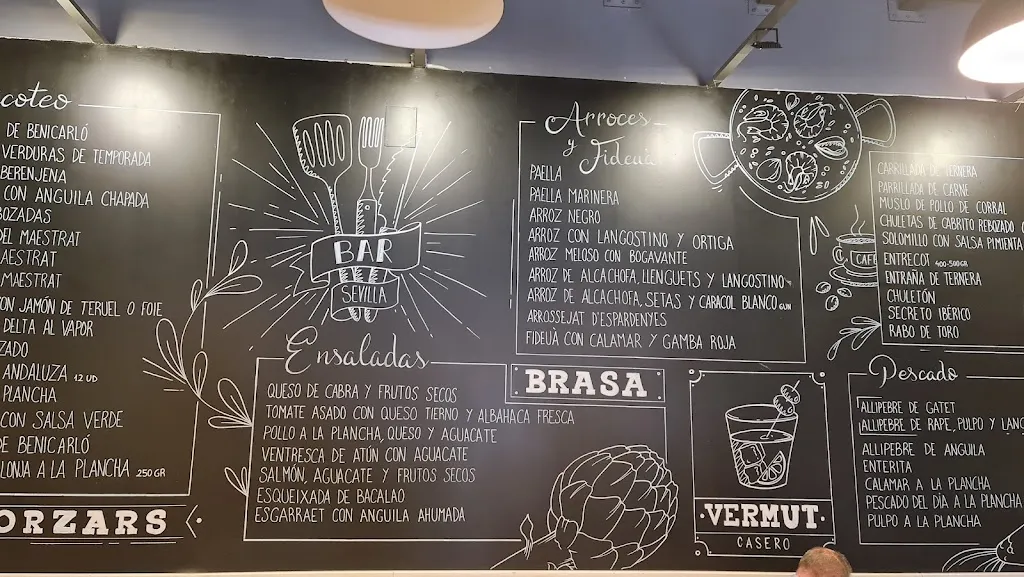 coteo
DE BENICARLÓ
VERDURAS DE TEMPORADA
BERENJENA
CON ANGUILA CHAPADA
BOZADAS
DEL MAESTRAT
AESTRAT
MAESTRAT
ON JAMÓN DE TERUEL O FOIE
DELTA AL VAPOR
ZADO
ANDALUZA 12 UD
PLANCHA
CON SALSA VERDE
DE BENICARLÓ
LONJA A LA PLANCHA 250 GR
ORZARS
BAR
SEVILLA
Ensaladas
QUESO DE CABRA Y FRUTOS SECOS
TOMATE ASADO CON QUESO TIERNO Y ALBAHACA FRESCA
POLLO A LA PLANCHA, QUESO Y AGUACATE
VENTRESCA DE ATÚN CON AGUACATE
SALMÓN, AGUACATE Y FRUTOS SECOS
ESQUEIXADA DE BACALAO
ESGARRAET CON ANGUILA AHUMADA
Arroces
y Fideuà
PAELLA
PAELLA MARINERA
ARROZ NEGRO
ARROZ CON LANGOSTINO Y ORTIGA
ARROZ MELOSO CON BOGAVANTE
ARROZ DE ALCACHOFA, LLENGUETS Y LANGOSTINO
ARROZ DE ALCACHOFA, SETAS Y CARACOL BLANCO
ARROSSEJAT D'ESPARDENYES
FIDEUÀ CON CALAMAR Y GAMBA ROJA
BRASA
VERMUT
CASERO
CAFÉ
CARRILLADA DE TERNERA
PARRILLADA DE CARNE
MUSLO DE POLLO DE CORRAL
CHULETAS DE CABRITO REBOZADO O
SOLOMILLO CON SALSA PIMIENTA
ENTRECOT 400-500GR
ENTRAÑA DE TERNERA
CHULETÓN
SECRETO IBÉRICO
RABO DE TORO
Pescado
ALLIPEBRE DE GATET
ALLIPEBRE DE RAPE, PULPO Y LANG
ALLIPEBRE DE ANGUILA
ENTERITA
CALAMAR A LA PLANCHA
PESCADO DEL DÍA A LA PLANCHA
PULPO A LA PLANCHA